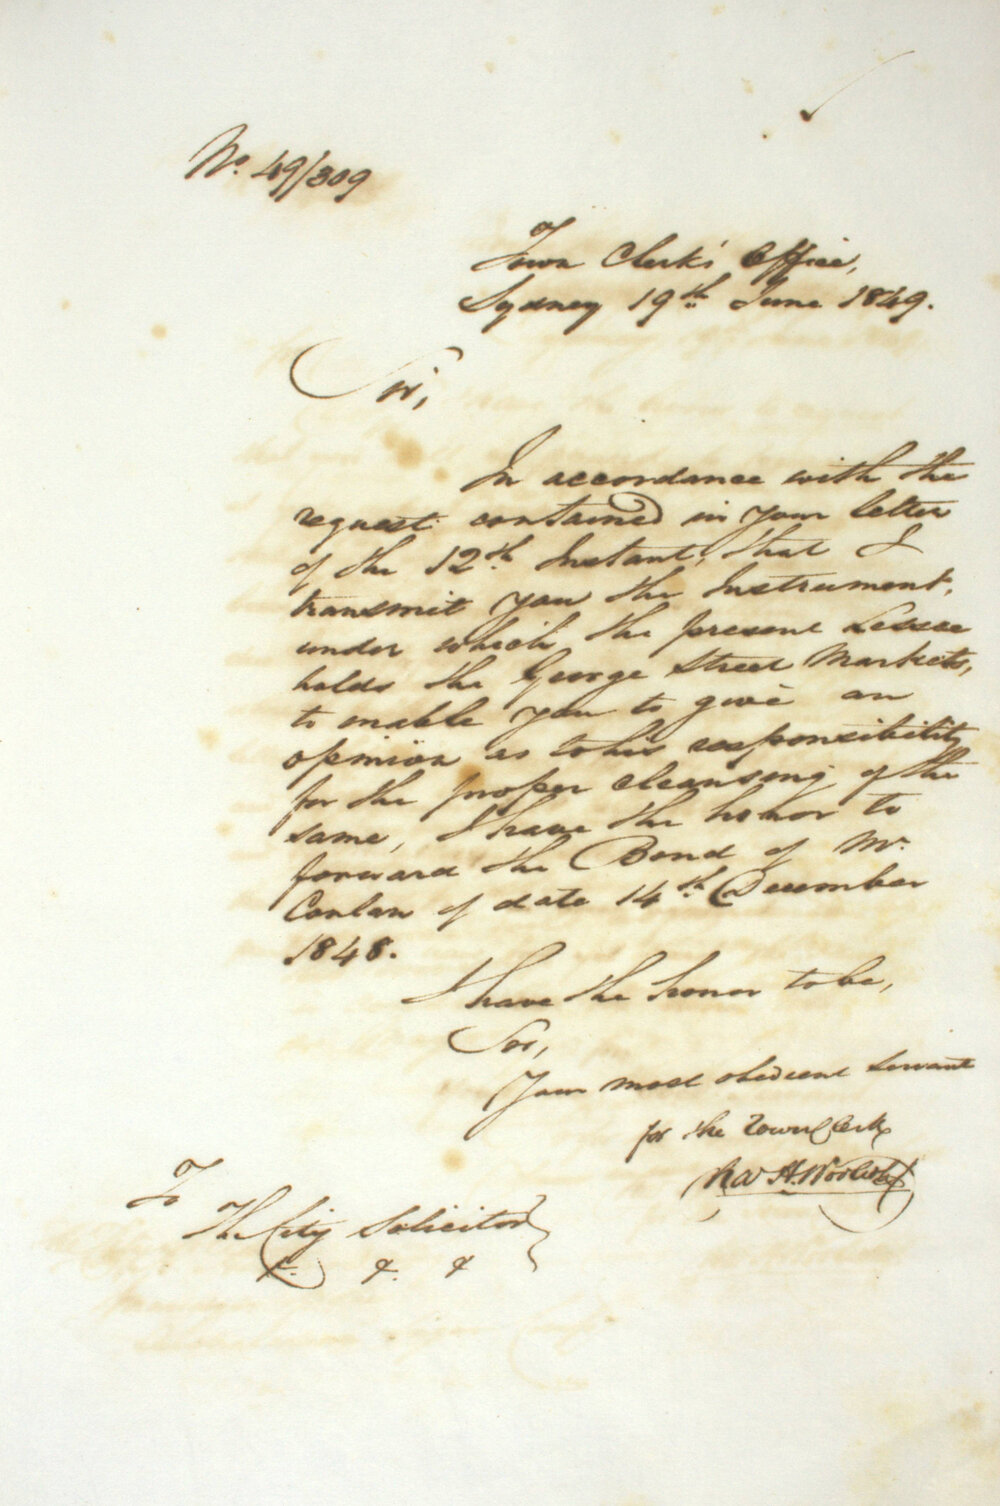 No. 49/309
Town Clerk's Office,
Sydney 19th June 1849.
Sir,
In accordance with the
request contained in your letter
of the 12th Instant, that I
transmit you the Instrument,
under which the present Lessee
holds the George Street Markets,
to enable you to give an
opinion as to his responsibility
for the proper cleansing of the
same, I have the honor to
forward the Bond of Mr.
Conlan of date 14th December
1848.
I have the honor to be,
Sir,
Your most obedient Servant
for the Town Clerk
To
The City Solicitor
&. &. &